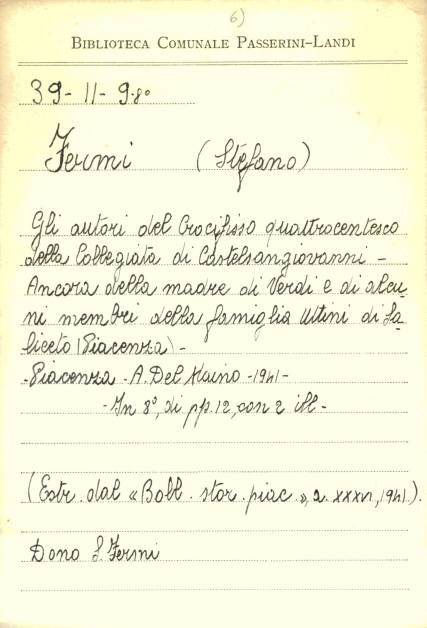 6)
BIBLIOTECA COMUNALE PASSERINI-LANDI
39-11-9.8°
Fermi (Stefano)
Gli autori del Crocifisso quattrocentesco
della Collegiata di Castelsangiovanni -
Ancora della madre di Verdi e di alcu-
ni membri della famiglia Uttini di Sa-
liceto (Piacenza) -
- Piacenza - A. Del Maino - 1941 -
- In 8°, di pp. 12, con 2 ill -
(Estr. dal « Boll. stor. piac. », a. XXXVI, 1941).
Dono S. Fermi